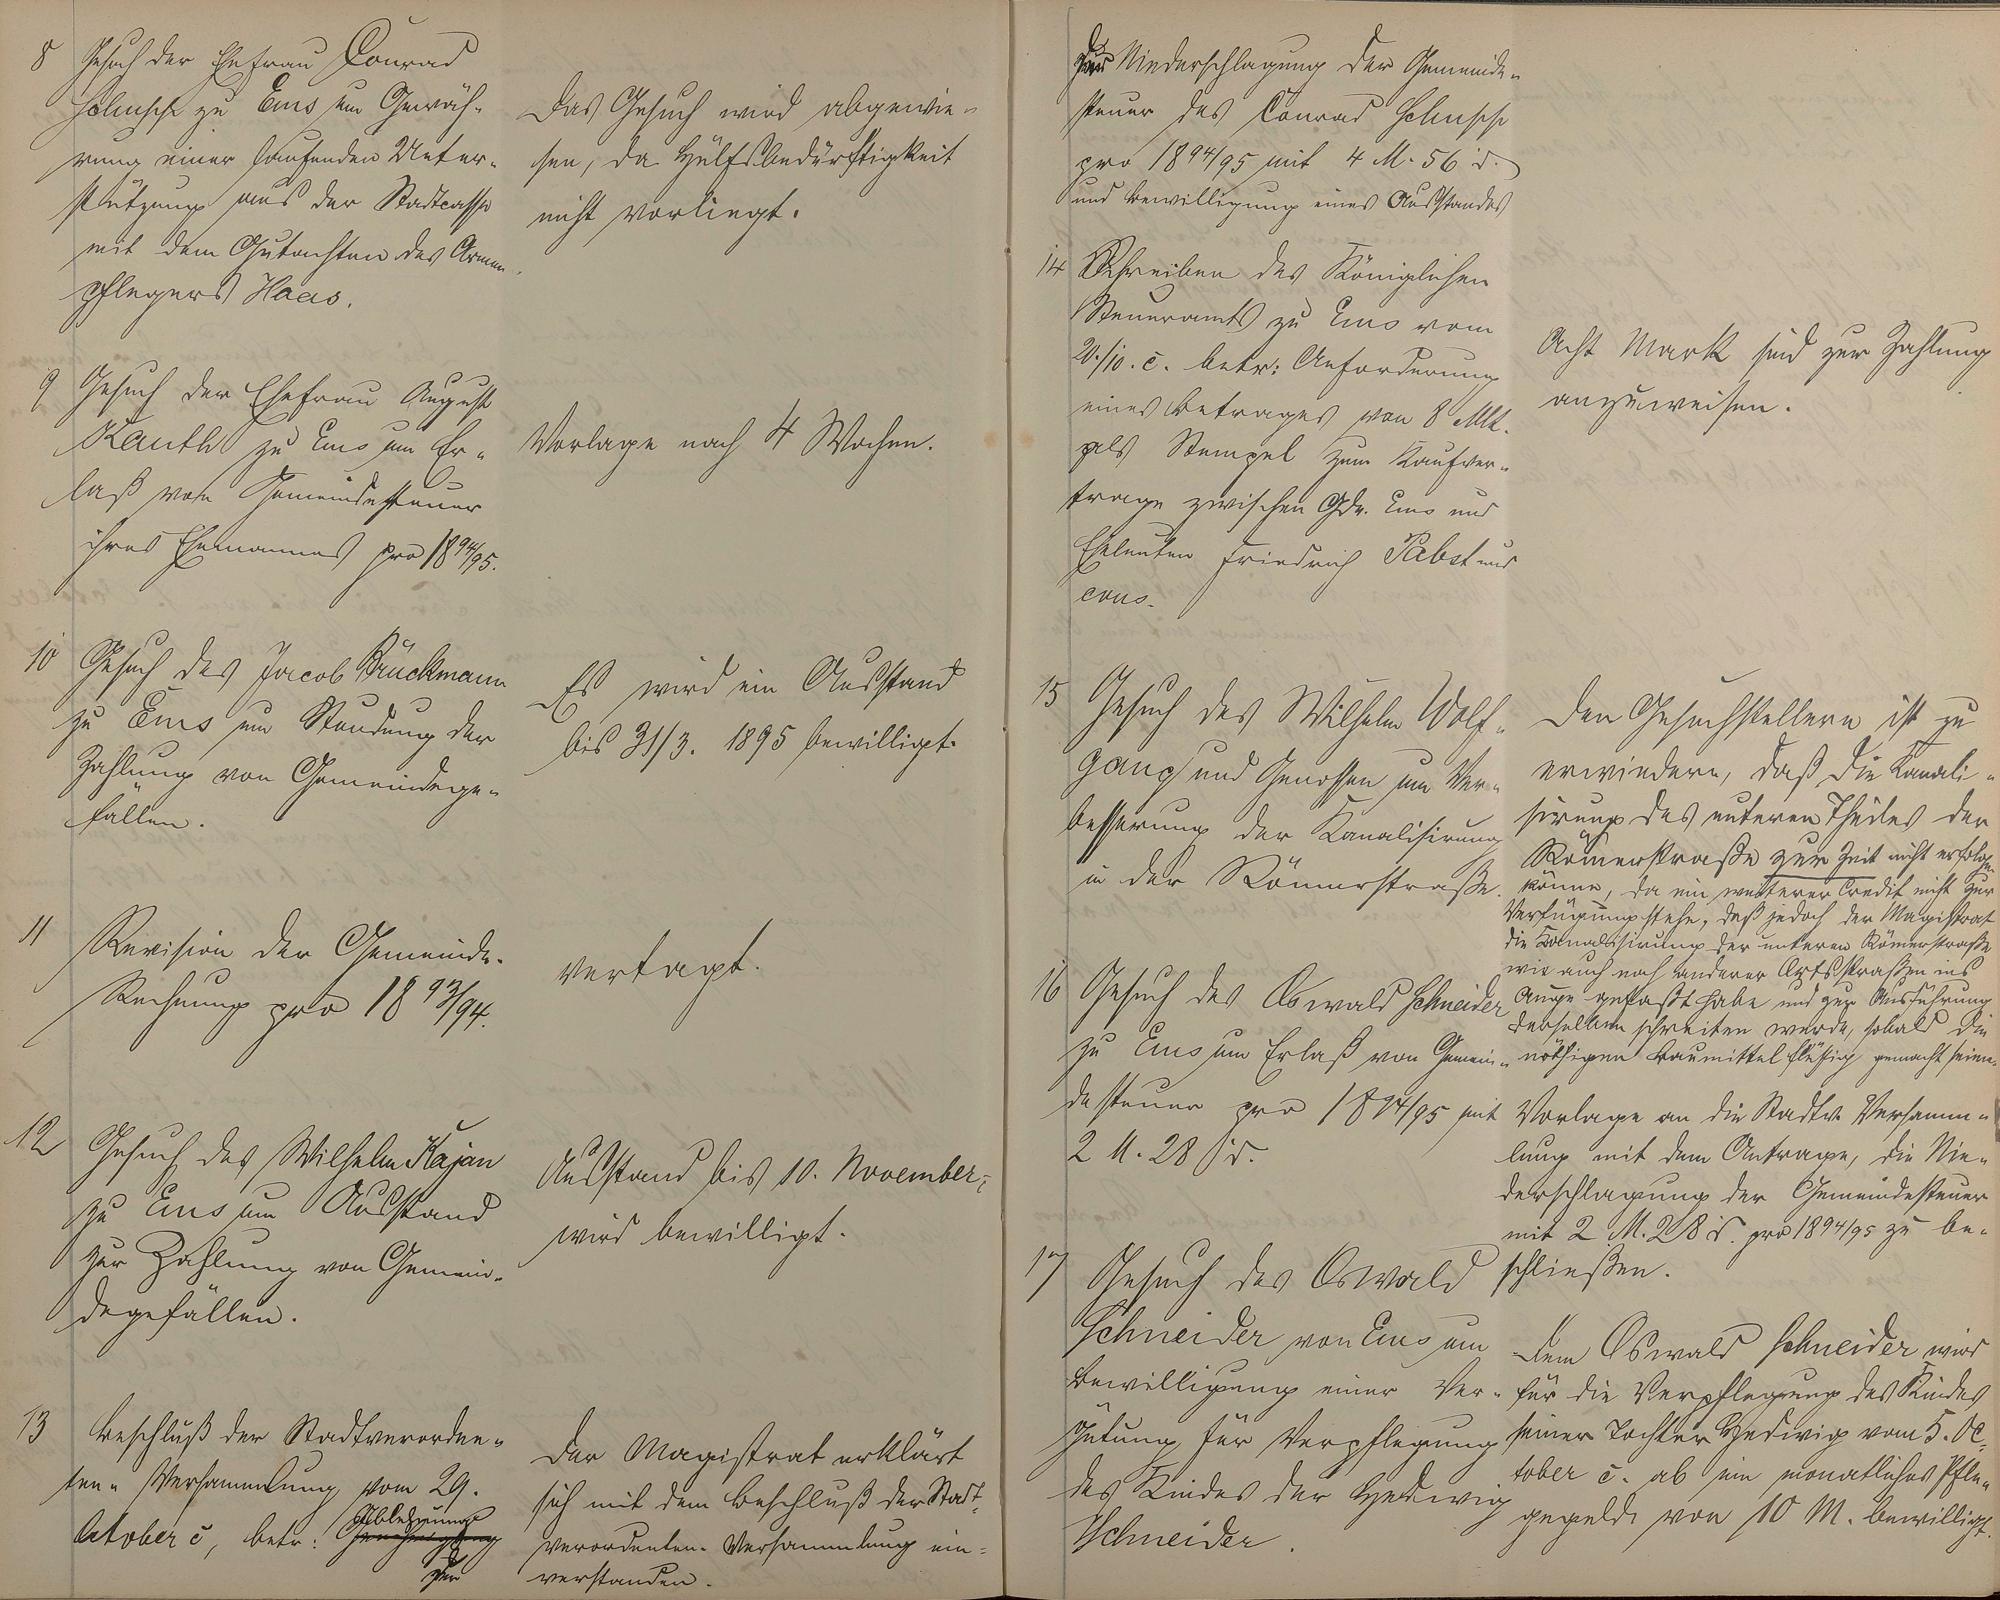 8 Gesuch der Ehefrau Conrad
zu Ems um Gewäh-
rung einer laufenden Unter-
stützung aus der Stadtcasse
mit dem Gutachten des Armen-
pflegers Haas.
Das Gesuch wird abgewie-
sen, da Hülfsbedürftigkeit
nicht vorliegt.
9 Gesuch der Ehefrau August
Kauth zu Ems um Er-
laß von Gemeindesteuer
ihres Ehemannes pro 1894/95.
Vorlage nach 4 Wochen.
10 Gesuch des Jacob Brückmann
zu Ems um Stundung der
Zahlung von Gemeindege-
fällen.
Es wird ein Ausstand
bis 31/3. 1895 bewilligt.
11 Revision der Gemeinde-
Rechnung pro 1893/94.
vertagt.
12 Gesuch des Wilhelm Kajan
zu Ems um Ausstand
zur Zahlung von Gemein-
degefällen.
Ausstand bis 10. November
wird bewilligt.
13 Beschluß der Stadtverordne-
ten-Versammlung vom 29.
October c, betr: Ablehnung
der
Der Magistrat erklärt
sich mit dem Beschluß der Stadt-
verordneten-Versammlung ein-
verstanden.
der Niederschlagung der Gemeinde-
steuer des Conrad
pro 1894/95 mit 4 M. 56 d.
und Bewilligung eines Ausstandes
14 Schreiben des Königlichen
Steueramts zu Ems vom
20./10. c. betr: Anforderung
eines Betrages von 8 Mk.
als Stempel zum Kaufver-
trage zwischen Gde. Ems und
Eheleuten Friedrich Pabst und
cons.
Acht Mark sind zur Zahlung
anzuweisen.
15 Gesuch des Wilhelm Wolf-
gang und Genossen um Ver-
besserung der Kanalisirung
in der Römerstraße.
Den Gesuchstellern ist zu
erwiedern, daß die Kanali-
sirung des unteren Theiles der
Römerstraße zur Zeit nicht erfolgen
könne, da ein weiterer Credit nicht zur
Verfügung stehe, daß jedoch der Magistrat
die Kanalisirung der unteren Römerstraße
wie auch noch anderer Ortsstraßen ins
Auge gefaßt habe und zur Ausführung
derselben schreiten werde, sobald die
nöthigen Baumittel flüssig gemacht seien.
16 Gesuch des Oswald Schneider
zu Ems um Erlaß von Gemein-
desteuer pro 1894/95 mit
2 M. 28 d.
Vorlage an die Stadtv. Versamm-
lung mit dem Antrage, die Nie-
derschlagung der Gemeindesteuer
mit 2 M. 28 d. pro 1894/95 zu be-
schließen.
17 Gesuch des Oswald
Schneider von Ems um
Bewilligung einer Ver-
gütung für Verpflegung
des Kindes der Hedwig
Schneider.
Dem Oswald Schneider wird
für die Verpflegung des Kindes
seiner Tochter Hedwig vom 5. Oc-
tober c. ab ein monatliches Pfle-
gegeld von 10 M. bewilligt.